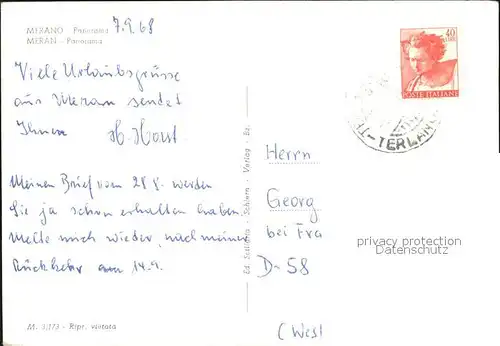 MERANO - Panorama
MERAN - Panorama
7.9.68
Viele Urlaubsgrüsse
aus Meran sendet
Ihnen H. Horst
Meinen Brief vom 28.8. werden
Sie ja schon erhalten haben.
Melde mich wieder, nach meiner
Rückkehr am 14.9.
M. 3/173 - Ripr. vietata
Ed. - Verlag - Bz.
40
POSTE ITALIANE
TERLAN
Herrn
Georg
bei Fra
D-58
(West
privacy protection
Datenschutz